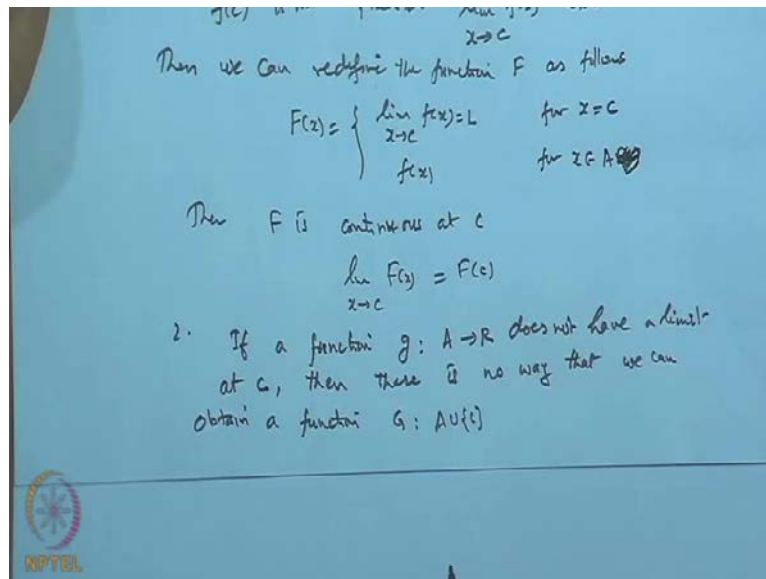 f(c) is
lim
x→c
Then we can redefine the function F as follows
F(x) = { lim f(x) = L for x = c
x→c
f(x) for x ∈ A
Then F is continuous at c
lim F(x) = F(c)
x→c
2. If a function g : A → R does not have a limit
at c, then there is no way that we can
obtain a function G : A∪{c}
NPTEL